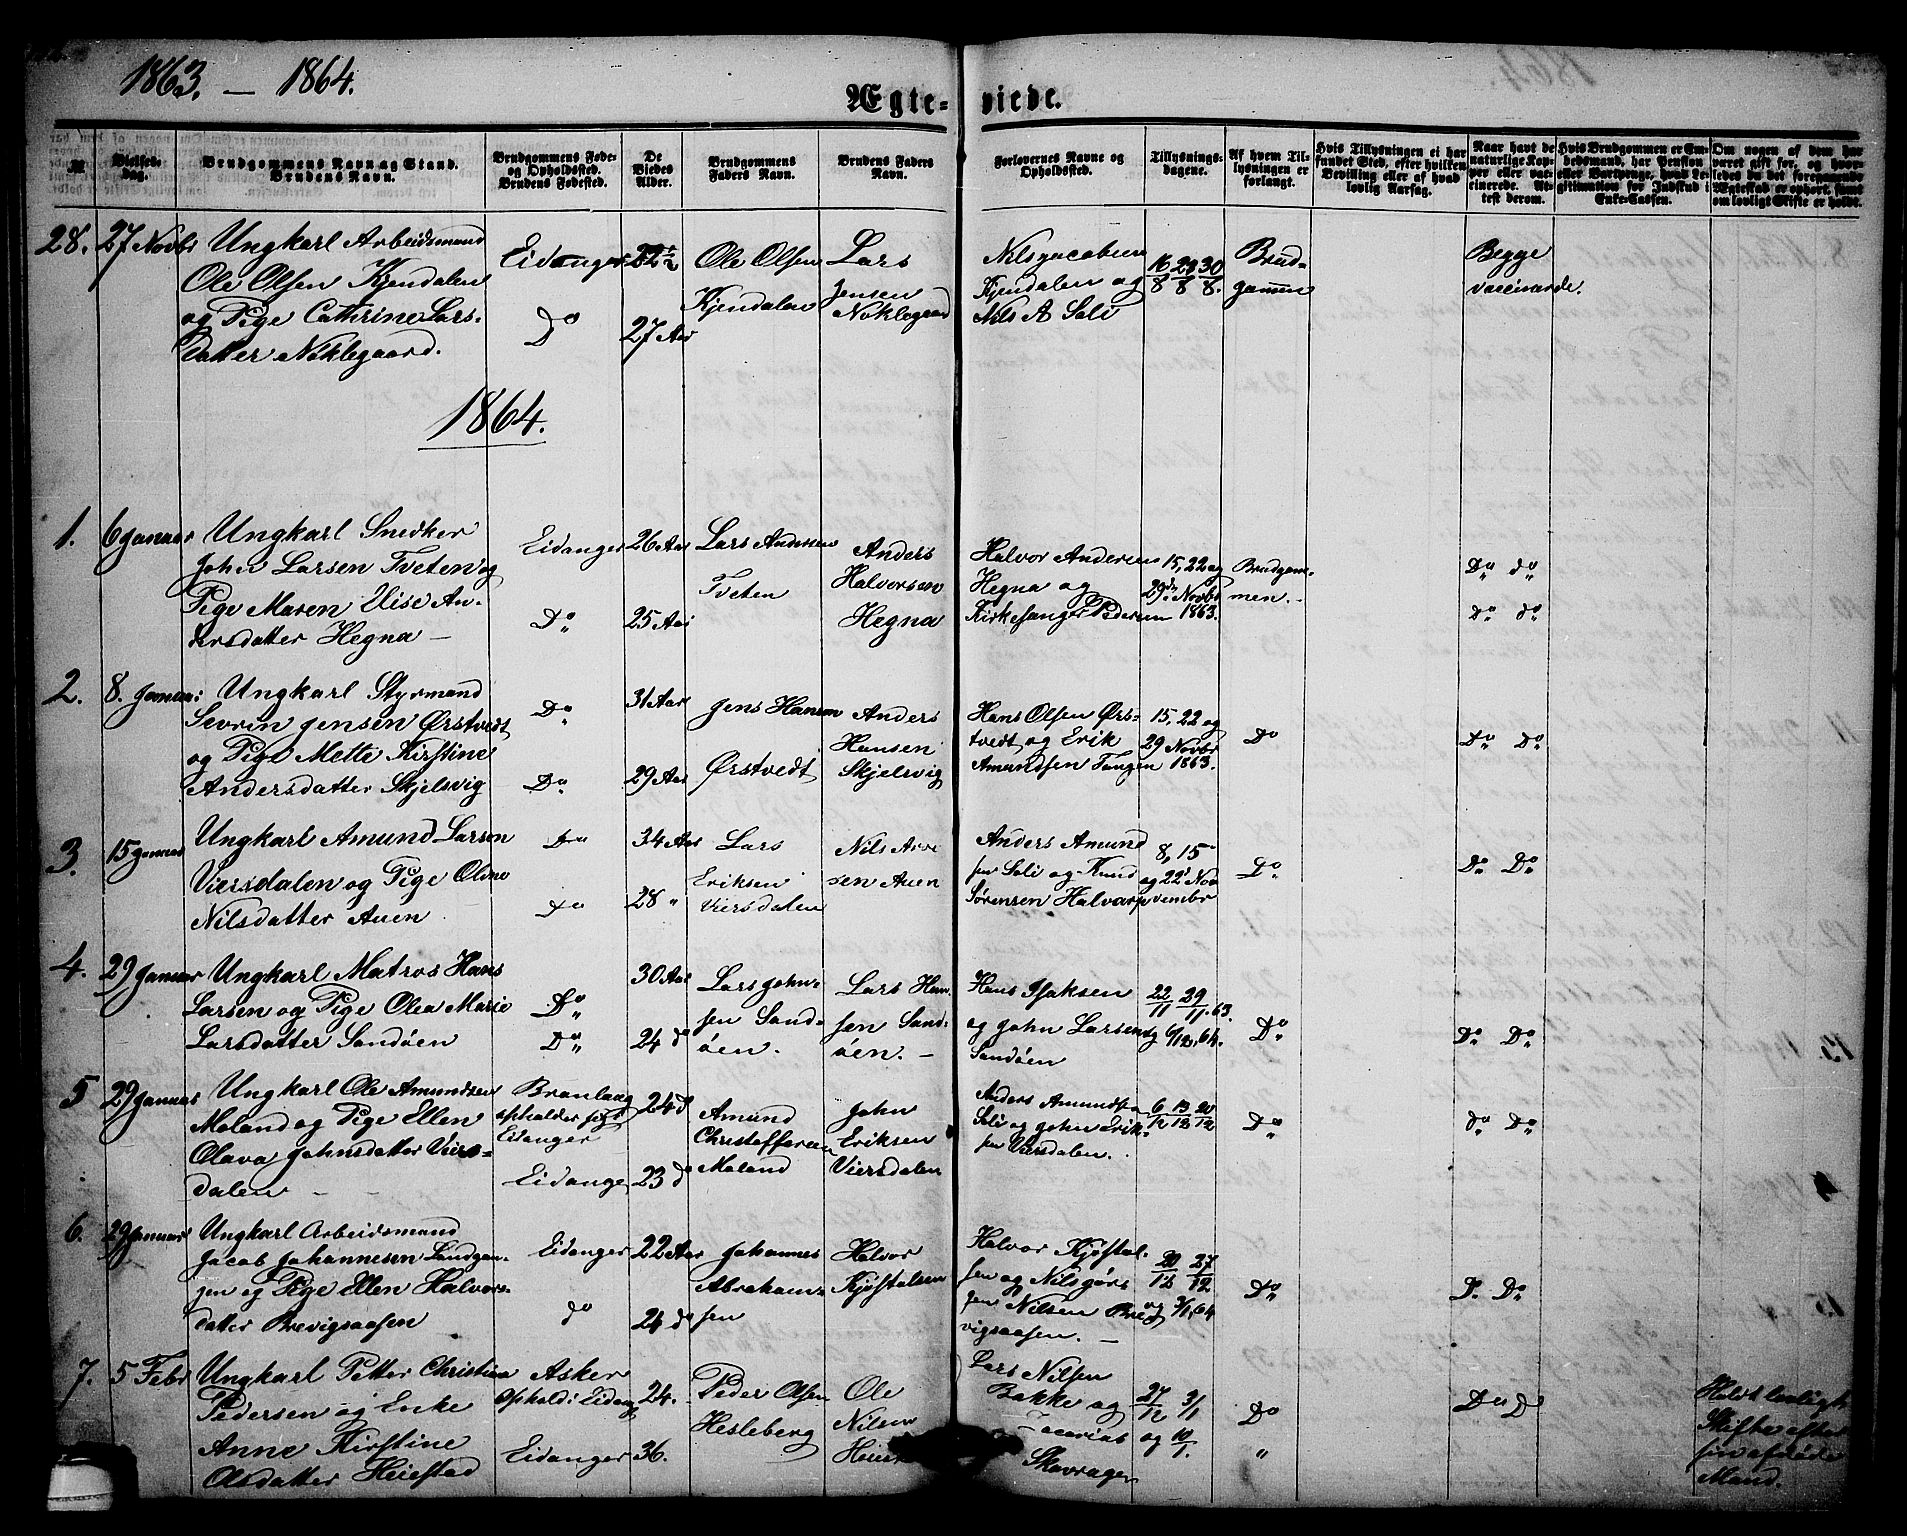 1863. — 1864.
Ægte-viede.
№
Vielses-dag.
Brudgommens Navn og Stand.
Brudens Navn.
Brudgommens Føde-
og Opholdssted.
Brudens Fødested.
De
Viedes
Alder.
Brudgommens
Faders Navn.
Brudens Faders
Navn.
Forlovernes Navne og
Opholdssted.
Tillysnings-
dagene.
Af hvem Til-
lysningen er
forlangt.
Hvis Tillysningen ei har
fundet Sted, efter hvilken
Bevilling eller af hvad
lovlig Aarsag.
Naar havt de
naturlige Kop-
per eller vac-
cinerede. At-
test derom.
Hvis Brudgommen er Em-
bedsmand, har Pension
eller Vartpenge, hvad Le-
gitimation for Indskud i
Enke-Cassen.
Om nogen af dem har
været gift før, og hvor-
ledes da det foregaaende
Ægteskab er ophørt, samt
om lovligt Skifte er holdt.
28. 27 Novbr Ungkarl Arbeidsmand
Ole Olsen Kjendalen
og Pige Cathrine Lars-
datter Nøklegaard.
Eidanger
Do
22½
27 Aar
Ole Olsen
Kjendalen
Lars
Jensen
Nøklegaard
Nils Jacobsen
Kjendalen og
Nils A Soli
16/8 23/8 30/8.
Brud-
gommen
Begge
vaccinerede.
1864.
1. 6 Januar Ungkarl Snedker
John Larsen Tveten og
Pige Maren Elise An-
dersdatter Hegna —
Eidanger
Do
26 Aar
25 Aar
Lars Andersen
Tveten
Anders
Halvorsen
Hegna
Halvor Andersen
Hegna og
Kirkesanger Pedersen
15, 22 og
29de Novbr
1863.
Brudgom-
men. -
Do do
Do do
2. 8. Januar Ungkarl Styrmand
Sevrin Jensen Ørstvedt
og Pige Mette Kirstine
Andersdatter Skjelsvig
Do
Do
31 Aar
29 Aar
Jens Hansen
Ørstvedt
Anders
Hansen
Skjelsvig
Hans Olsen Ørs-
tvedt og Erik
Amundsen Tangen
15, 22 og
29 Novbr
1863.
Do
Do Do
3. 15 Januar Ungkarl Amund Larsen
Viersdalen og Pige Oline
Nilsdatter Auen
Do
Do
34 Aar
28 "
Lars
Eriksen
Viersdalen
Nils
sen Auen
Anders Amund
sen Soli og Knud
Sørensen Halvarp
8, 15
og 22 No
vembr
Do
Do Do
4. 29 Januar Ungkarl Matros Hans
Larsen og Pige Olea Marie
Larsdatter Sandøen
Do
Do
30 Aar
24 d
Lars John-
sen Sand-
øen.
Lars Han-
sen Sand-
øen. —
Hans Isaksen
og John Larsen
Sandøen
22/11 29/11. 63.
og 6/12. 64.
Do
Do Do
5 29 Januar Ungkarl Ole Amundsen
Moland og Pige Ellen
Olava Johnsdatter Viers-
dalen —
opholder sig i
Eidanger
Eidanger
24 d
23 d
Amund
Christoffersen
Moland
John
Eriksen
Viersdalen
Anders Amundsen
Soli og John Erik-
sen Viersdalen.
6/12 13/12 20/12
Do
do Do
6. 29 Januar Ungkarl Arbeidsmand
Jacob Johannesen Landgan-
gen og Pige Ellen Halvors-
datter Brevigsaasen
Eidanger
do
22 Aar
24 d
Johannes
Abraham-
sen
Halvor
Kjøstolsen
Halvor Kjøstol-
sen og Nils Jørg
sen Nilsen Bre
vigsaasen. —
20/12 27/12
og 3/1. 64
Do
D. Do
7. 5 Febr Ungkarl Petter Christian
Pedersen og Enke
Anne Kirstine
Olsdatter Heiestad
Asker
Ophold i Eidang
Eidanger
24.
36.
Peder Olsen
Hesleberg
Ole
Nilsen
Heiest
Lars Nilsen
Bakke og
Zacarias
Skavragen
27/12 3/1
og 10/1.
Do
"
Do Do
Holdt lovligt
Skifte efter
sin afdøde
Mand.